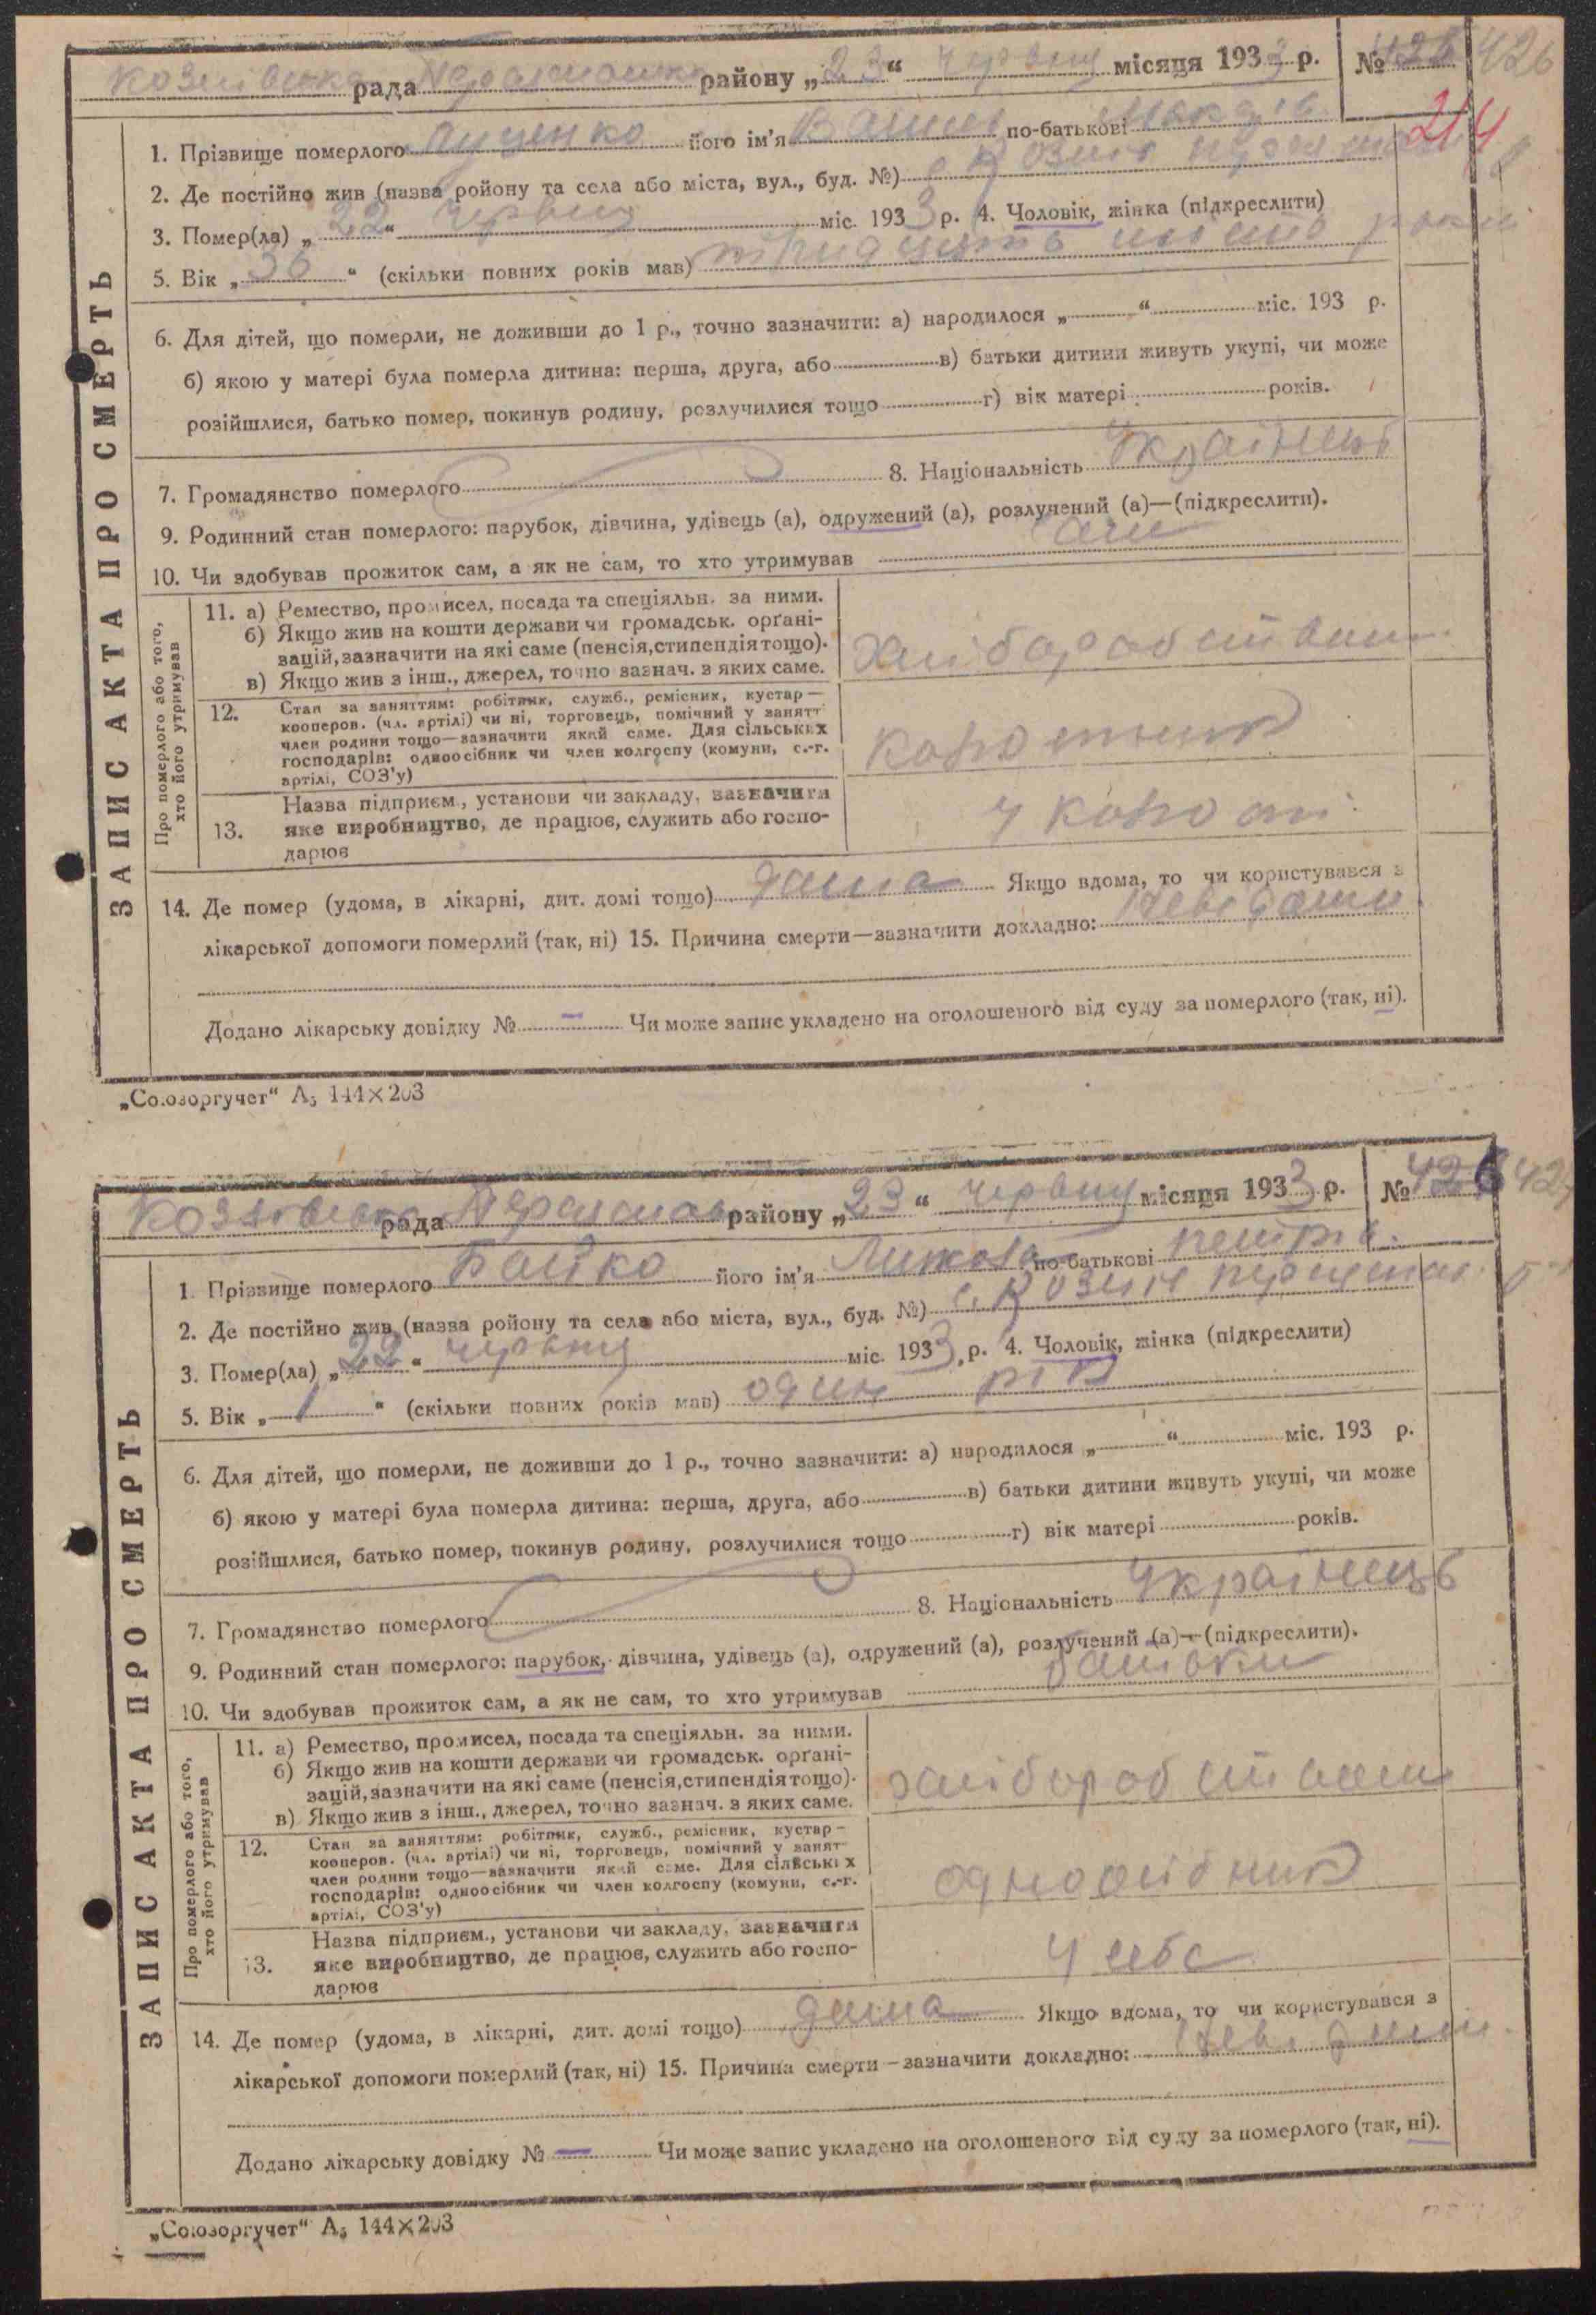 рада району „23“ червня місяця 1933 р. № 426
214
1. Прізвище померлого його ім'я по-батькові
2. Де постійно жив (назва ройону та села або міста, вул., буд. №)
3. Помер(ла) „22“ червня міс. 1933 р. 4. Чоловік, жінка (підкреслити)
5. Вік „36“ (скільки повних років мав) тридцять роки
6. Для дітей, що померли, не доживши до 1 р., точно зазначити: а) народилося „ “ міс. 193 р.
б) якою у матері була померла дитина: перша, друга, або в) батьки дитини живуть укупі, чи може
розійшлися, батько помер, покинув родину, розлучилися тощо г) вік матері років.
7. Громадянство померлого 8. Національність Українець
9. Родинний стан померлого: парубок, дівчина, удівець (а), одружений (а), розлучений (а)—(підкреслити).
10. Чи здобував прожиток сам, а як не сам, то хто утримував сам
ЗАПИС АКТА ПРО СМЕРТЬ
Про померлого або того,
хто його утримував
11. а) Ремество, промисел, посада та спеціяльн. за ними.
б) Якщо жив на кошти держави чи громадськ. орґані-
зацій, зазначити на які саме (пенсія, стипендія тощо).
в) Якщо жив з інш., джерел, точно зазнач. з яких саме.
12. Стан за заняттям: робітник, служб., ремісник, кустар—
кооперов. (чл. артілі) чи ні, торговець, помічний у занятт
член родини тощо—зазначити який саме. Для сільських
господарів: одноосібник чи член колгоспу (комуни, с.-г.
артілі, СОЗ'у)
13. Назва підприєм., установи чи закладу, зазначити
яке виробництво, де працює, служить або госпо-
дарює
14. Де помер (удома, в лікарні, дит. домі тощо) дома Якщо вдома, то чи користувався з
лікарської допомоги померлий (так, ні) 15. Причина смерти—зазначити докладно:
Додано лікарську довідку № — Чи може запис укладено на оголошеного від суду за померлого (так, ні).
„Союзоргучет“ А₅ 144×203
рада району „23“ червня місяця 1933 р. №
1. Прізвище померлого Бойко його ім'я по-батькові
2. Де постійно жив (назва ройону та села або міста, вул., буд. №)
3. Помер(ла) „22“ червня міс. 1933 р. 4. Чоловік, жінка (підкреслити)
5. Вік „1“ (скільки повних років мав) один рік
6. Для дітей, що померли, не доживши до 1 р., точно зазначити: а) народилося „ “ міс. 193 р.
б) якою у матері була померла дитина: перша, друга, або в) батьки дитини живуть укупі, чи може
розійшлися, батько помер, покинув родину, розлучилися тощо г) вік матері років.
7. Громадянство померлого 8. Національність Українець
9. Родинний стан померлого: парубок, дівчина, удівець (а), одружений (а), розлучений (а)—(підкреслити).
10. Чи здобував прожиток сам, а як не сам, то хто утримував батьки
ЗАПИС АКТА ПРО СМЕРТЬ
Про померлого або того,
хто його утримував
11. а) Ремество, промисел, посада та спеціяльн. за ними.
б) Якщо жив на кошти держави чи громадськ. орґані-
зацій, зазначити на які саме (пенсія, стипендія тощо).
в) Якщо жив з інш., джерел, точно зазнач. з яких саме.
12. Стан за заняттям: робітник, служб., ремісник, кустар—
кооперов. (чл. артілі) чи ні, торговець, помічний у занят
член родини тощо—зазначити який саме. Для сільських
господарів: одноосібник чи член колгоспу (комуни, с.-г.
артілі, СОЗ'у)
одноосібник
13. Назва підприєм., установи чи закладу, зазначити
яке виробництво, де працює, служить або госпо-
дарює
у себе
14. Де помер (удома, в лікарні, дит. домі тощо) дома Якщо вдома, то чи користувався з
лікарської допомоги померлий (так, ні) 15. Причина смерти—зазначити докладно:
Додано лікарську довідку № — Чи може запис укладено на оголошеного від суду за померлого (так, ні).
„Союзоргучет“ А₅ 144×203